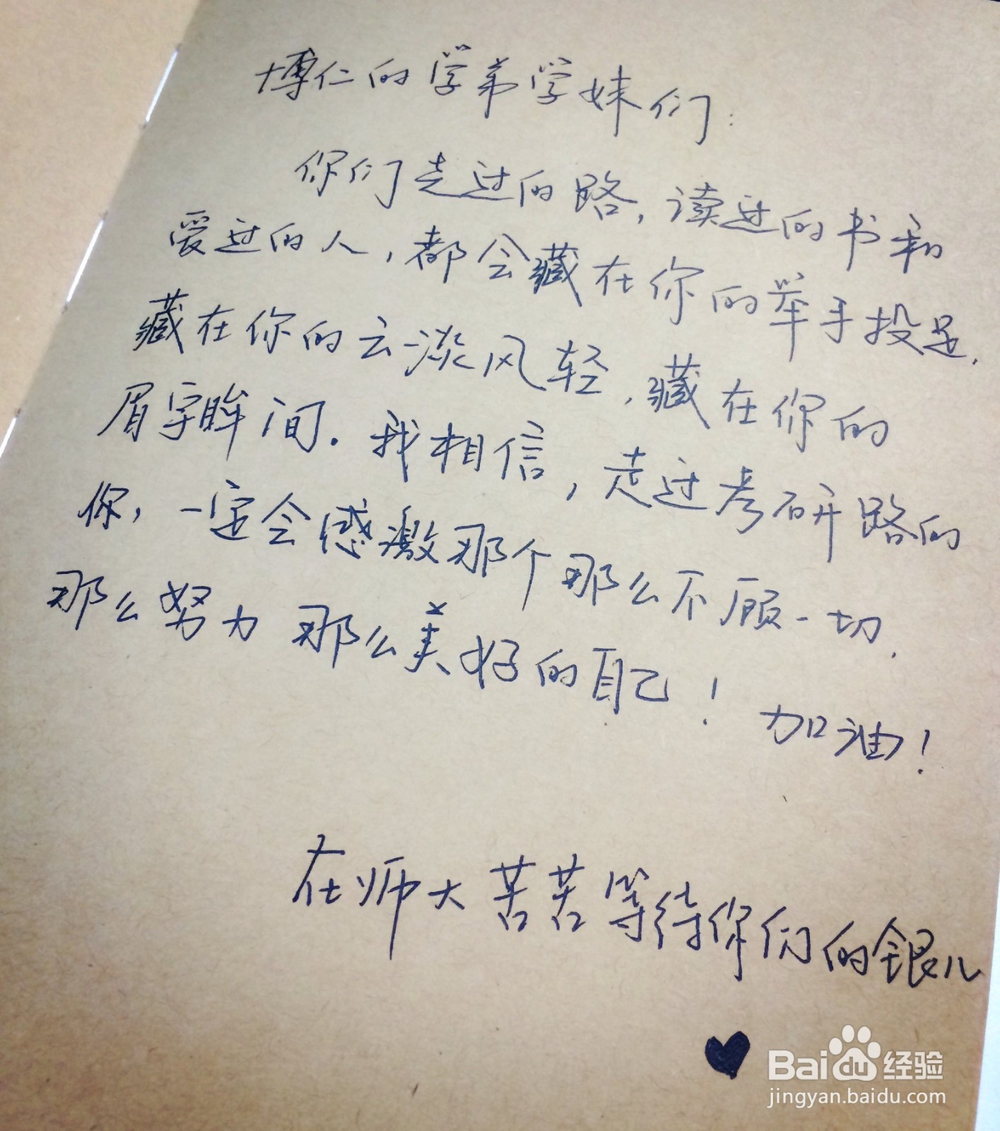 博仁的学弟学妹们：
你们走过的路，读过的书和
爱过的人，都会藏在你的举手投足，
藏在你的云淡风轻，藏在你的
眉宇眸间。我相信，走过考研路的
你，一定会感激那个那么不顾一切，
那么努力 那么美好的自己！加油！
在师大苦苦等待你们的银儿
Baidu 经验
jingyan.baidu.com